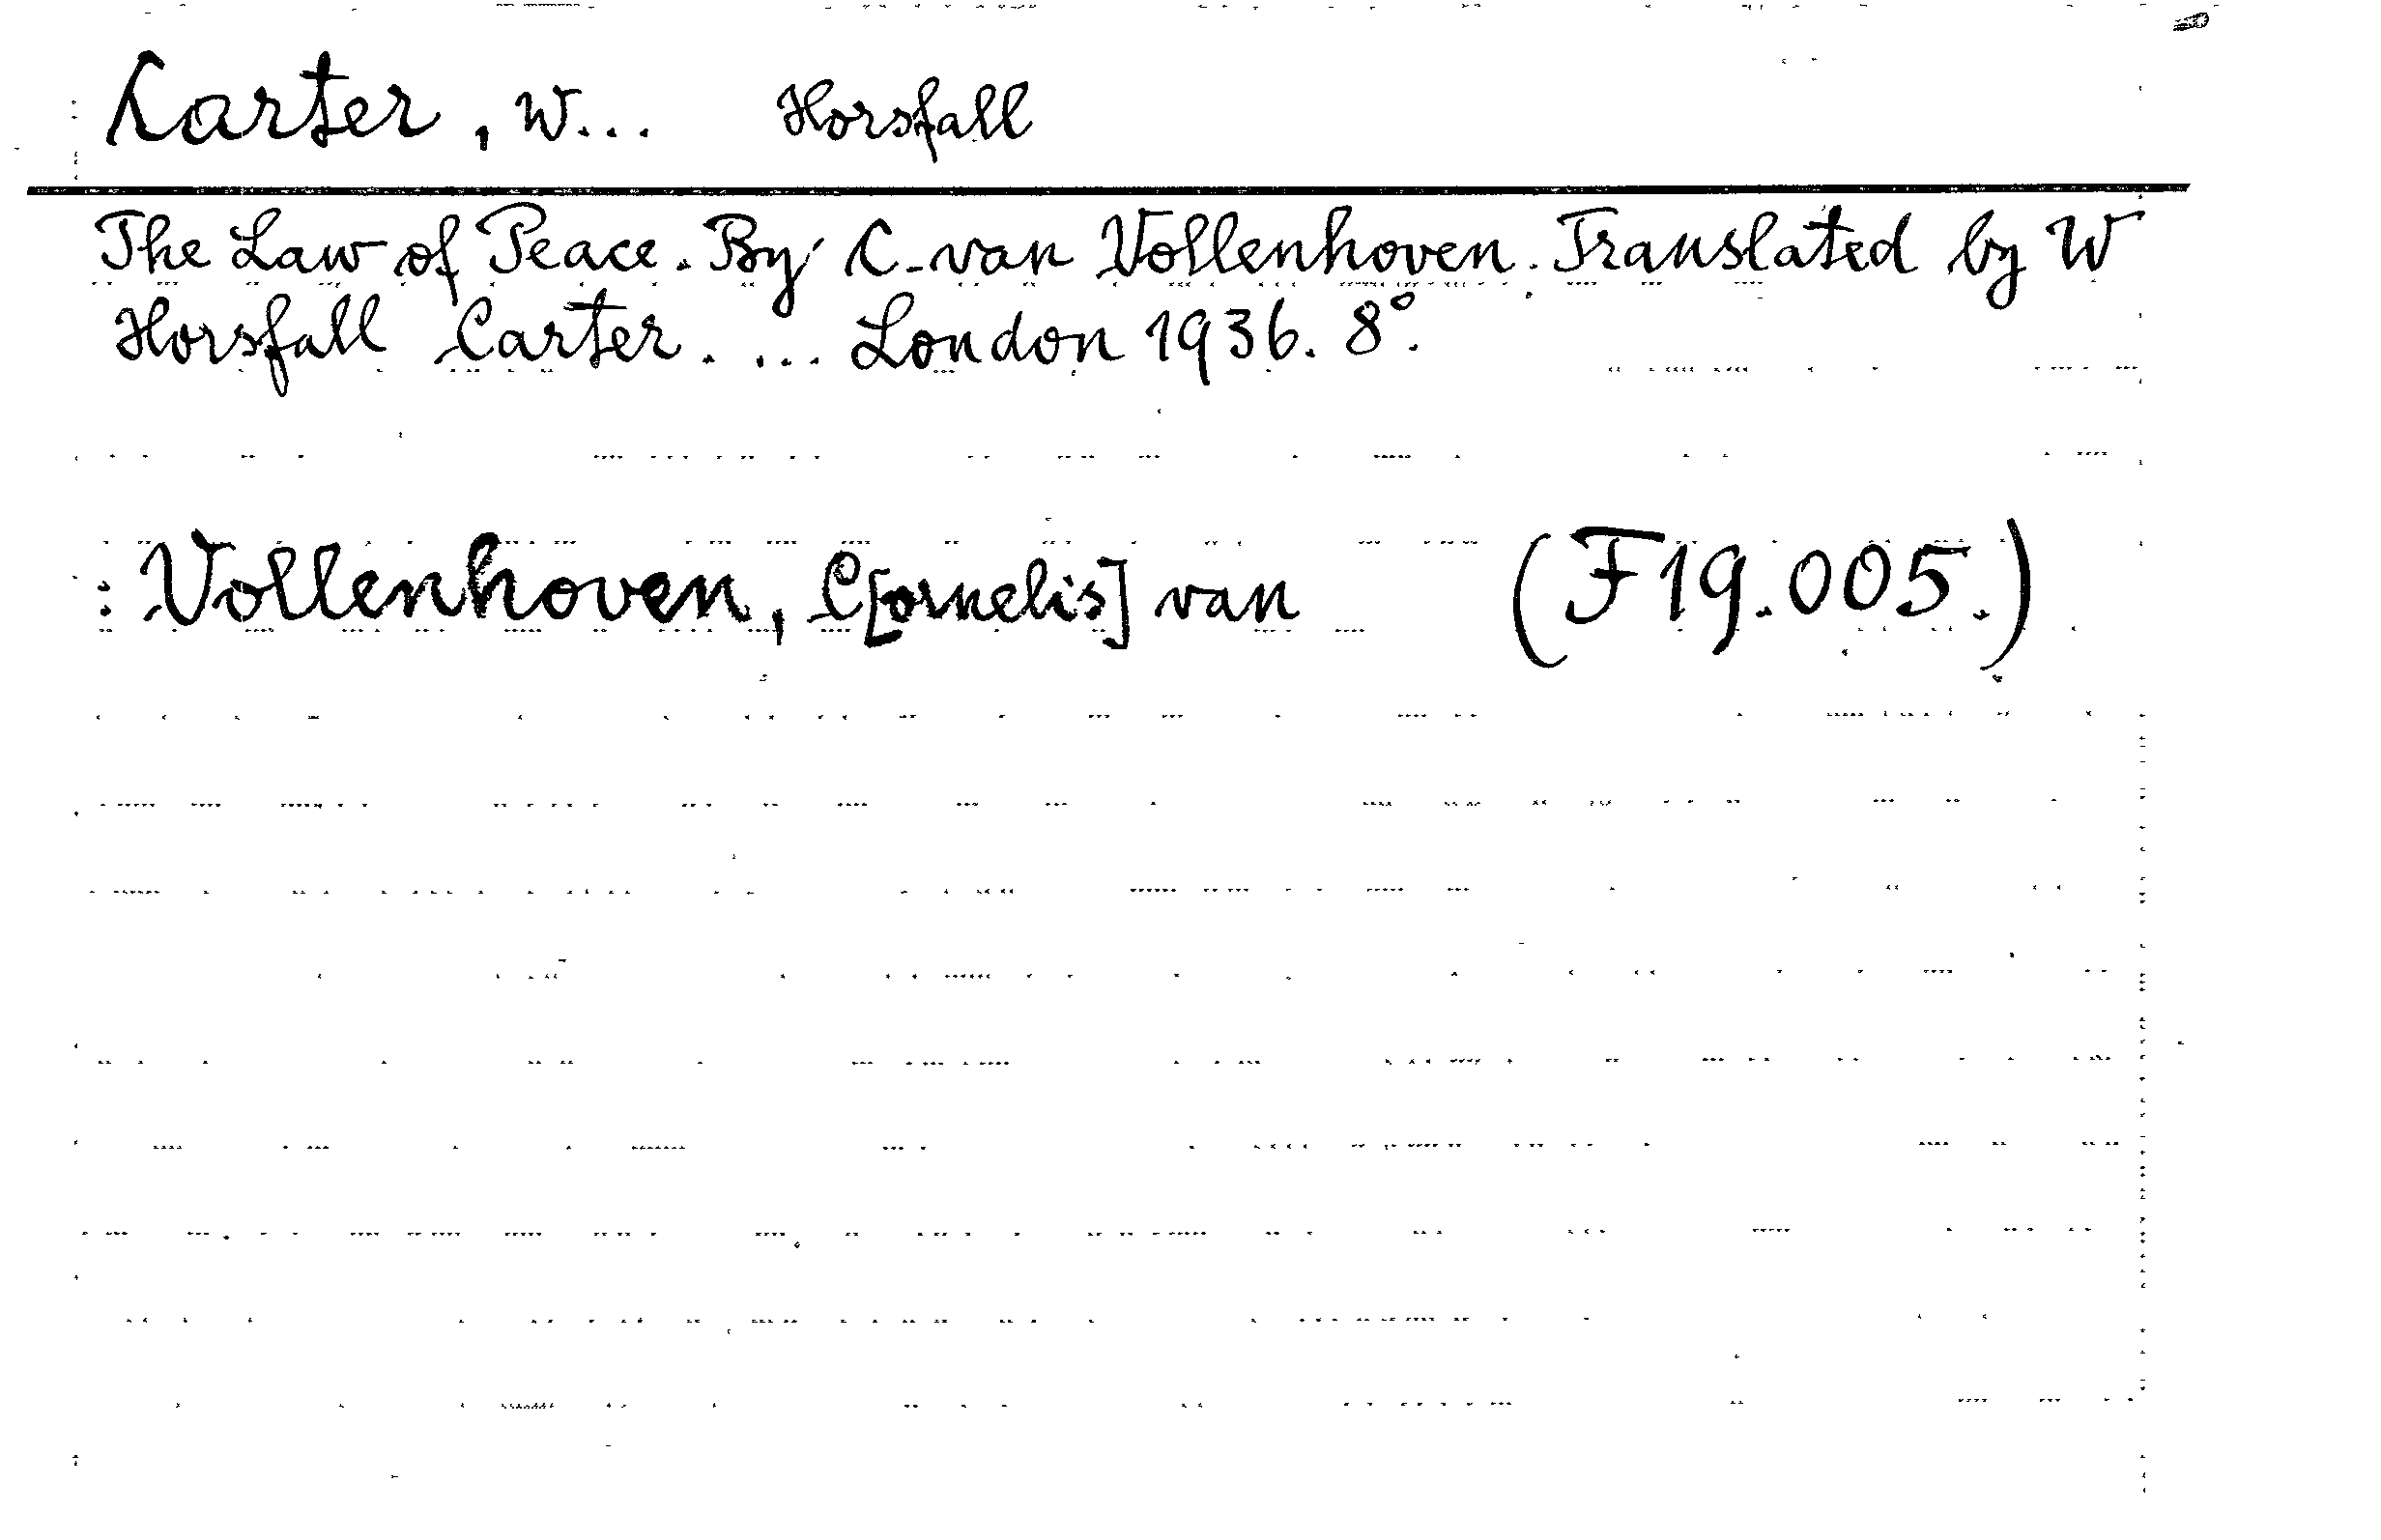 Carter, W... Horsfall
The Law of Peace. By C. van Vollenhoven. Translated by W
Horsfall Carter. ... London 1936. 8°.
: Vollenhoven, C[ornelis] van (F19.005.)